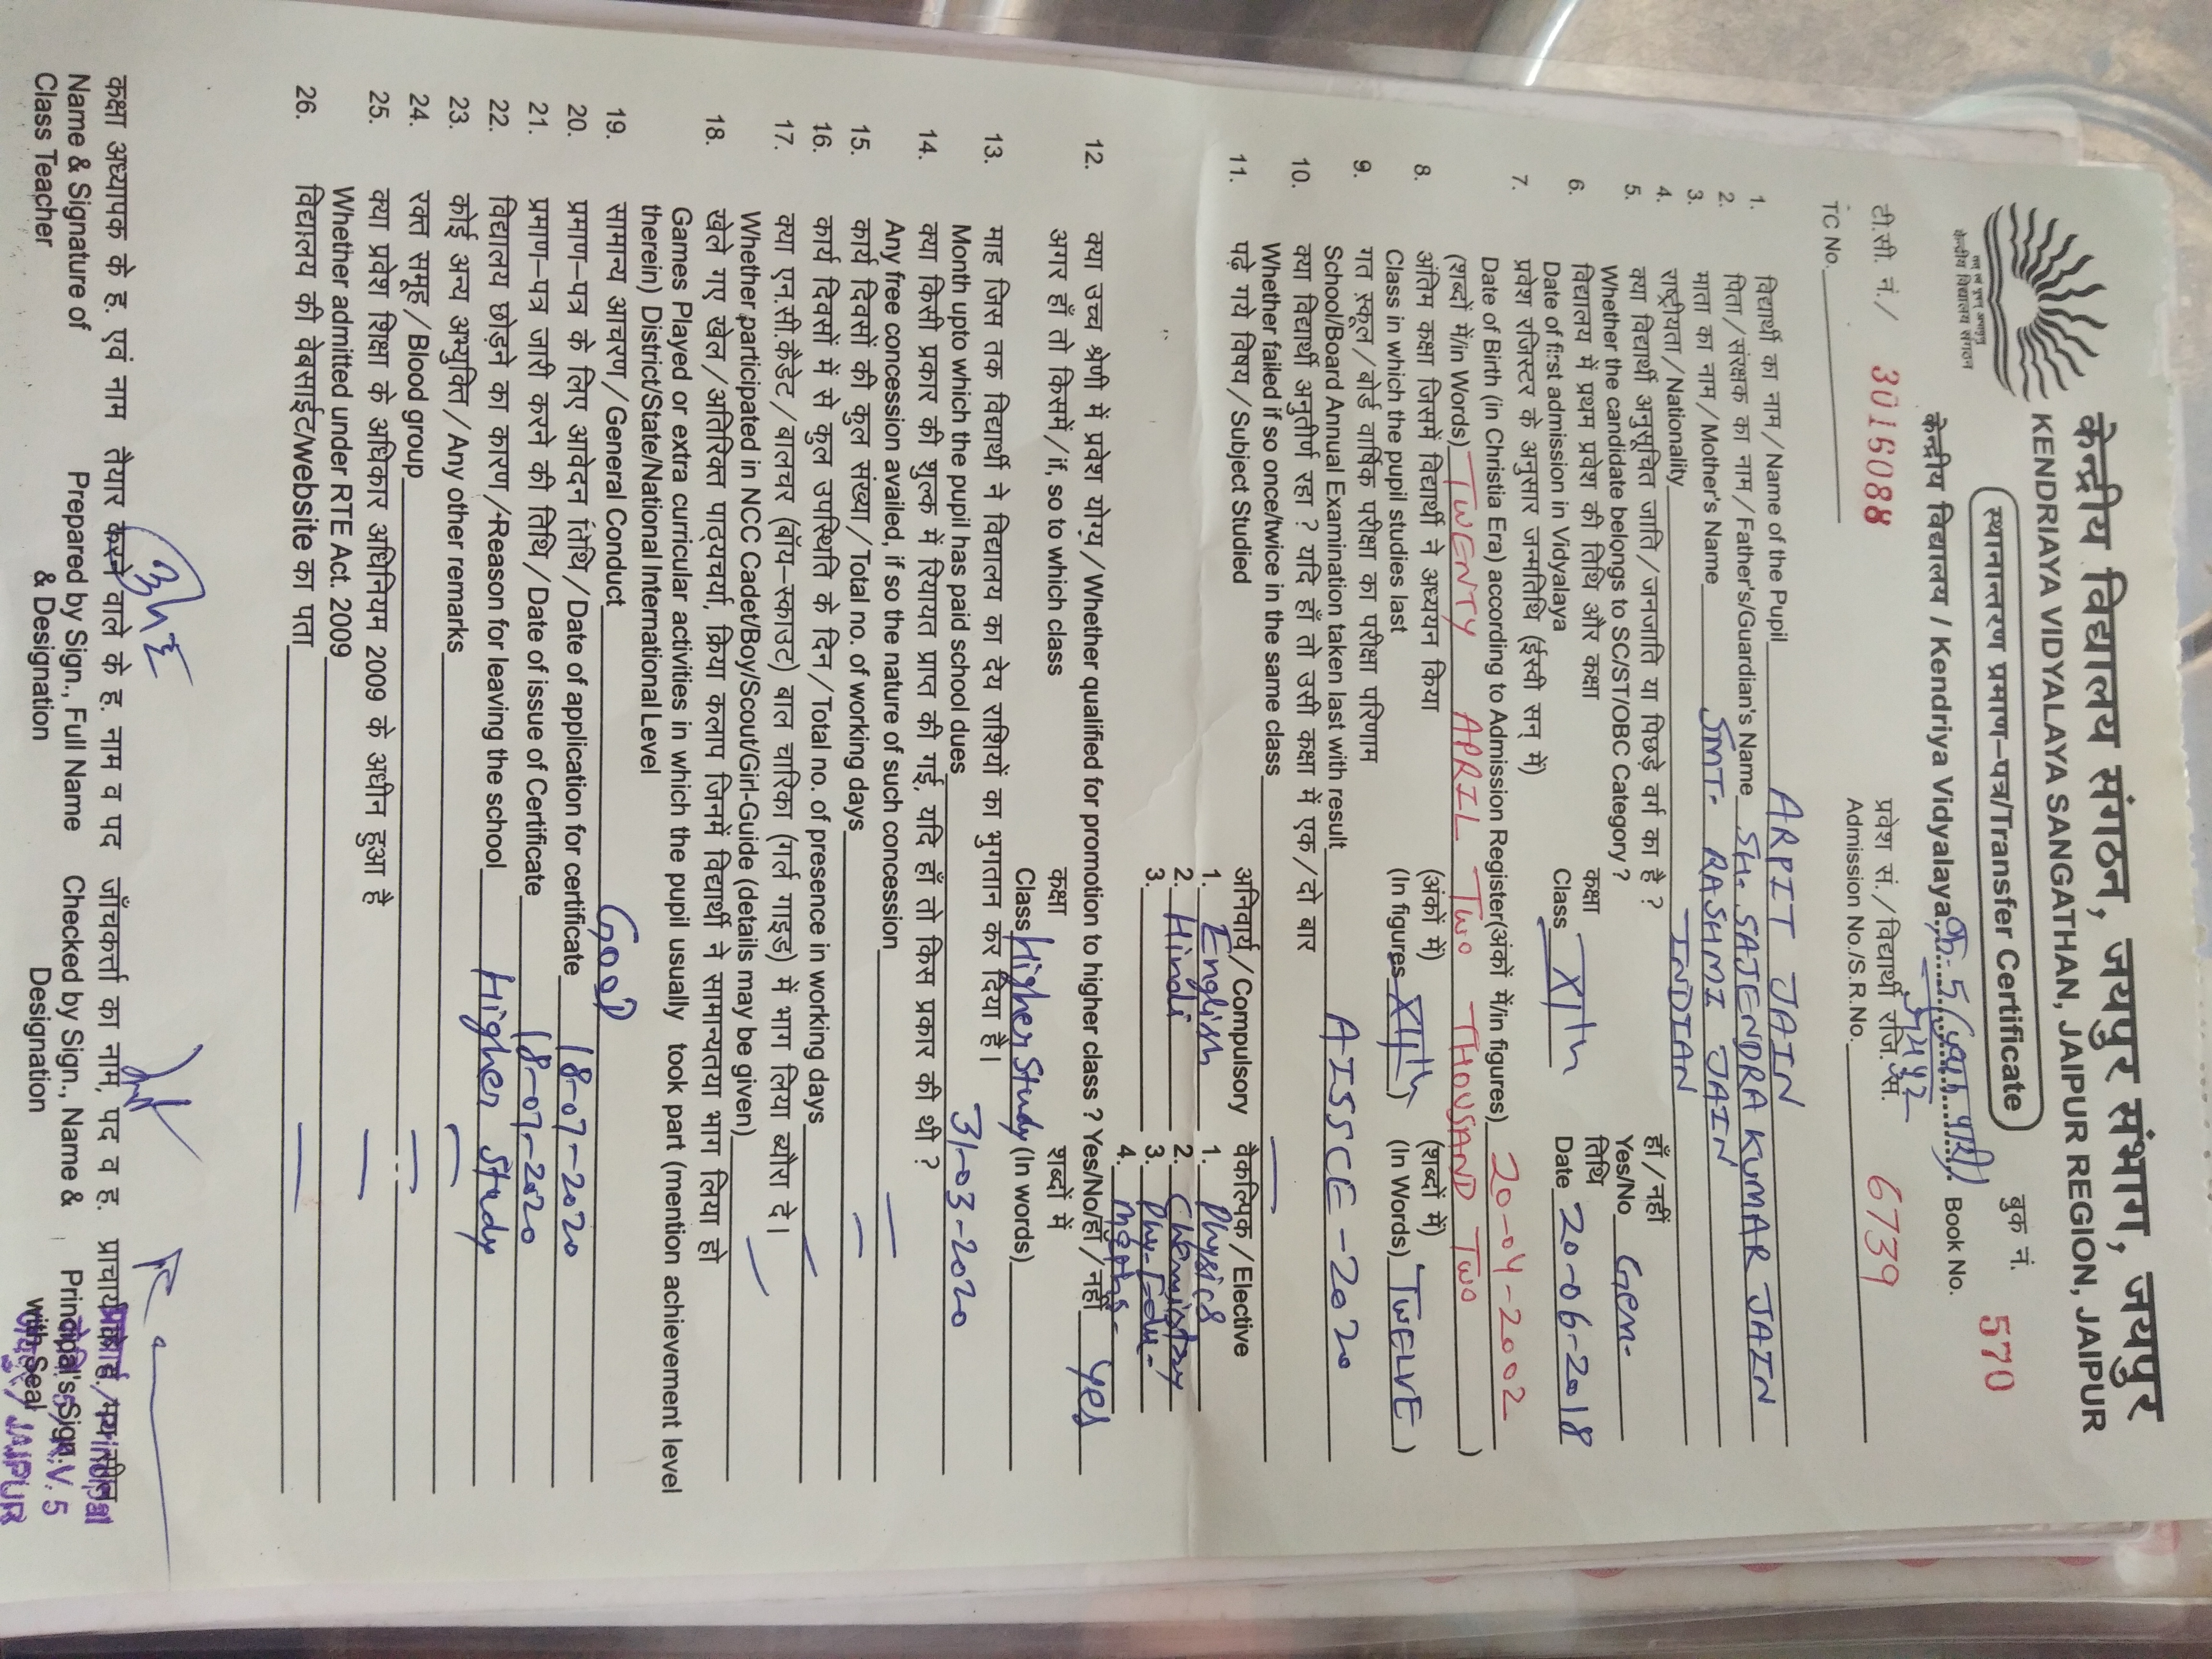 केन्द्रीय विद्यालय संगठन, जयपुर संभाग, जयपुर
KENDRIAYA VIDYALAYA SANGATHAN, JAIPUR REGION, JAIPUR
स्थानान्तरण प्रमाण–पत्र/Transfer Certificate
तत् त्वं पूषन् अपावृणु
केन्द्रीय विद्यालय संगठन
केन्द्रीय विद्यालय / Kendriya Vidyalaya, क्र-5 (द्वितीय पारी)
जयपुर
बुक नं.
Book No. 570
टी.सी. नं./ 3016088
TC No.
प्रवेश सं./विद्यार्थी रजि. सं.
Admission No./S.R.No. 6739
1. विद्यार्थी का नाम/Name of the Pupil ARPIT JAIN
2. पिता/संरक्षक का नाम/Father's/Guardian's Name SH. SAJENDRA KUMAR JAIN
3. माता का नाम/Mother's Name SMT. RASHMI JAIN
4. राष्ट्रीयता/Nationality INDIAN
5. क्या विद्यार्थी अनुसूचित जाति/जनजाति या पिछड़े वर्ग का है? हाँ/नहीं
Whether the candidate belongs to SC/ST/OBC Category? Yes/No Gen.
6. विद्यालय में प्रथम प्रवेश की तिथि और कक्षा कक्षा तिथि
Date of first admission in Vidyalaya Class XIth Date 20-06-2018
7. प्रवेश रजिस्टर के अनुसार जन्मतिथि (ईस्वी सन् में)
Date of Birth (in Christia Era) according to Admission Register(अंकों में/in figures) 20-04-2002
(शब्दों में/in Words) TWENTY APRIL TWO THOUSAND TWO )
8. अंतिम कक्षा जिसमें विद्यार्थी ने अध्ययन किया (अंकों में) (शब्दों में)
Class in which the pupil studies last (In figures XIIth ) (In Words) TWELVE )
9. गत स्कूल/बोर्ड वार्षिक परीक्षा का परीक्षा परिणाम
School/Board Annual Examination taken last with result AISSCE-2020
10. क्या विद्यार्थी अनुतीर्ण रहा? यदि हाँ तो उसी कक्षा में एक/दो बार
Whether failed if so once/twice in the same class —
11. पढ़े गये विषय/Subject Studied अनिवार्य/Compulsory वैकल्पिक/Elective
1. English 1. Physics
2. Hindi 2. Chemistry
3. 3. Phy. Edu.-
4. Maths.
12. क्या उच्च श्रेणी में प्रवेश योग्य/Whether qualified for promotion to higher class? Yes/No/हाँ/नहीं yes
अगर हाँ तो किसमें/if, so to which class कक्षा शब्दों में
Class Higher Study (In words)
13. माह जिस तक विद्यार्थी ने विद्यालय का देय राशियों का भुगतान कर दिया है।
Month upto which the pupil has paid school dues 31-03-2020
14. क्या किसी प्रकार की शुल्क में रियायत प्राप्त की गई, यदि हाँ तो किस प्रकार की थी?
Any free concession availed, if so the nature of such concession —
15. कार्य दिवसों की कुल संख्या/Total no. of working days —
16. कार्य दिवसों में से कुल उपस्थिति के दिन/Total no. of presence in working days —
17. क्या एन.सी.कैडेट/बालचर (बॉय–स्काउट) बाल चारिका (गर्ल गाइड) में भाग लिया ब्यौरा दे।
Whether participated in NCC Cadet/Boy/Scout/Girl-Guide (details may be given) —
18. खेले गए खेल/अतिरिक्त पाठ्यचर्या, क्रिया कलाप जिनमें विद्यार्थी ने सामान्यतया भाग लिया हो
Games Played or extra curricular activities in which the pupil usually took part (mention achievement level
therein) District/State/National International Level
19. सामान्य आचरण/General Conduct GOOD
20. प्रमाण–पत्र के लिए आवेदन तिथि/Date of application for certificate 18-07-2020
21. प्रमाण–पत्र जारी करने की तिथि/Date of issue of Certificate 18-07-2020
22. विद्यालय छोड़ने का कारण/Reason for leaving the school Higher Study
23. कोई अन्य अभ्युक्ति/Any other remarks —
24. रक्त समूह/Blood group —
25. क्या प्रवेश शिक्षा के अधिकार अधिनियम 2009 के अधीन हुआ है
Whether admitted under RTE Act. 2009 —
26. विद्यालय की वेबसाईट/website का पता —
कक्षा अध्यापक के ह. एवं नाम तैयार करने वाले के ह. नाम व पद जाँचकर्ता का नाम, पद व ह. प्राचार्य के ह./मय सील
Name & Signature of Prepared by Sign., Full Name Checked by Sign., Name & Principal's Sign.
Class Teacher & Designation Designation with Seal
Principal
K.V. 5
JAIPUR